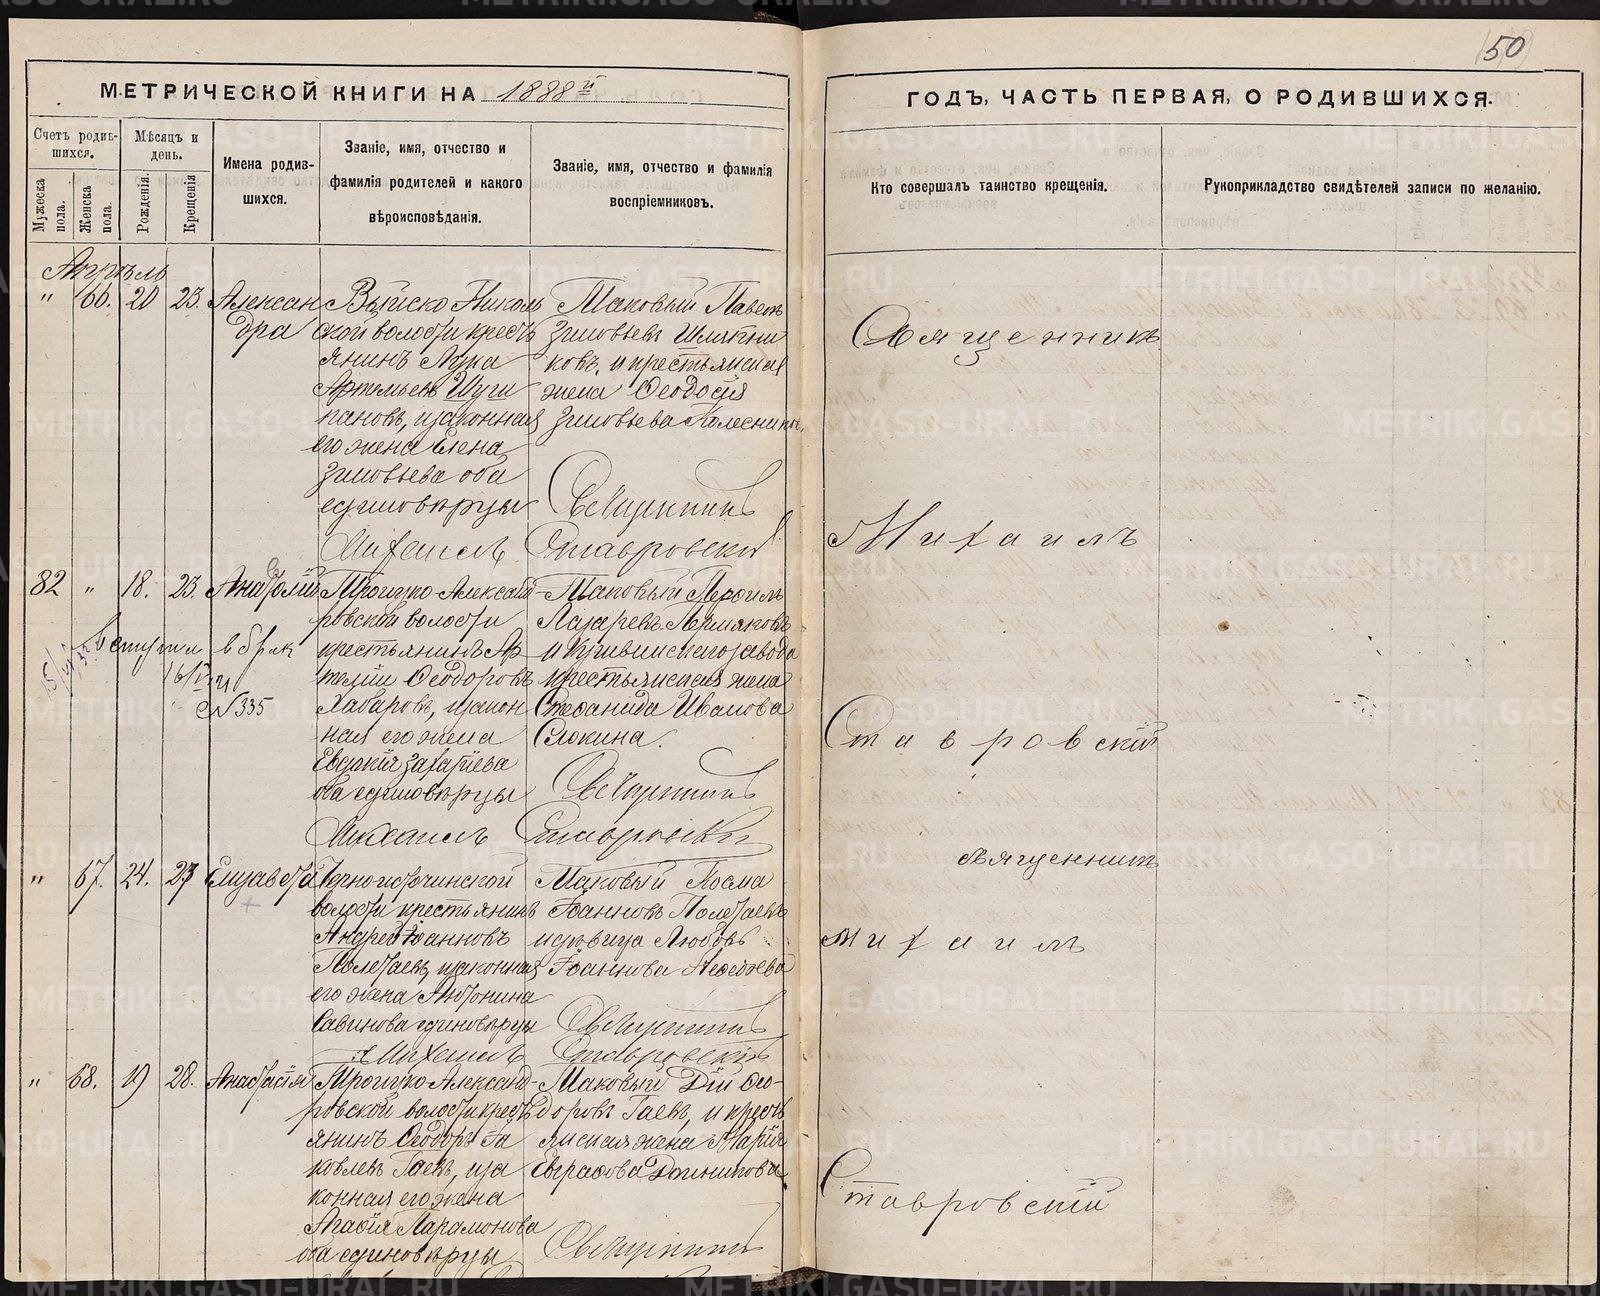 50
МЕТРИЧЕСКОЙ КНИГИ НА 1888й
ГОДЪ, ЧАСТЬ ПЕРВАЯ, О РОДИВШИХСЯ.
Счетъ родив-
шихся.
Мужеска
пола.
Женска
пола.
Мѣсяцъ и
день.
Рожденія.
Крещенія
Имена родив-
шихся.
Званіе, имя, отчество и
фамилія родителей и какого
вѣроисповѣданія.
Званіе, имя, отчество и фамилія
воспріемниковъ.
Кто совершалъ таинство крещенія.
Рукоприкладство свидѣтелей записи по желанію.
Апрѣль
" 66. 20 23. Алексан
дра
Николь
ской волости кресть
янинъ Лука
Артемьевъ
пановъ, и законная
его жена Елена
Зиновьева оба
единовѣрцы
Таковый Павелъ
Зиновьевъ Шляпни
ковъ, и крестьянская
жена Ѳеодосія
Зиновьева Колесников
Михаилъ Ставровскій
Священникъ
Михаилъ
Ставровскій
82 " 18. 23. Анатолій
Троицко-Александ
ровской волости
крестьянинъ
Ѳеодоровъ
Хабаровъ, и закон
ная его жена
Евдокія Захаріева
оба единовѣрцы
Таковый
Лазаревъ Пермяковъ
и Кушвинскаго завода
крестьянская жена
Стефанида Иванова
Слюкина.
Михаилъ Ставровскій
Вступил в брак
№ 335
" 67. 24. 27 Елизавета
Черноисточинской
волости крестьянинъ
Андрей Іоанновъ
Полетаевъ, и законная
его жена Антонина
Савинова единовѣрцы
Таковый Косма
Іоанновъ Полетаевъ
и дѣвица Любовь
Іоаннова
Михаилъ Ставровскій
священникъ
Михаилъ
Ставровскій
" 68. 19 28. Анастасія
Троицко-Александ-
ровской волости кресть
янинъ Ѳеодоръ Іа
ковлевъ Гаевъ, и за
конная его жена
Агафія Парамонова
оба единовѣрцы
Таковый Дій Ѳео-
доровъ Гаевъ, и кресть
янская жена Марія
Евграфова
METRIKI.GASO-URAL.RU